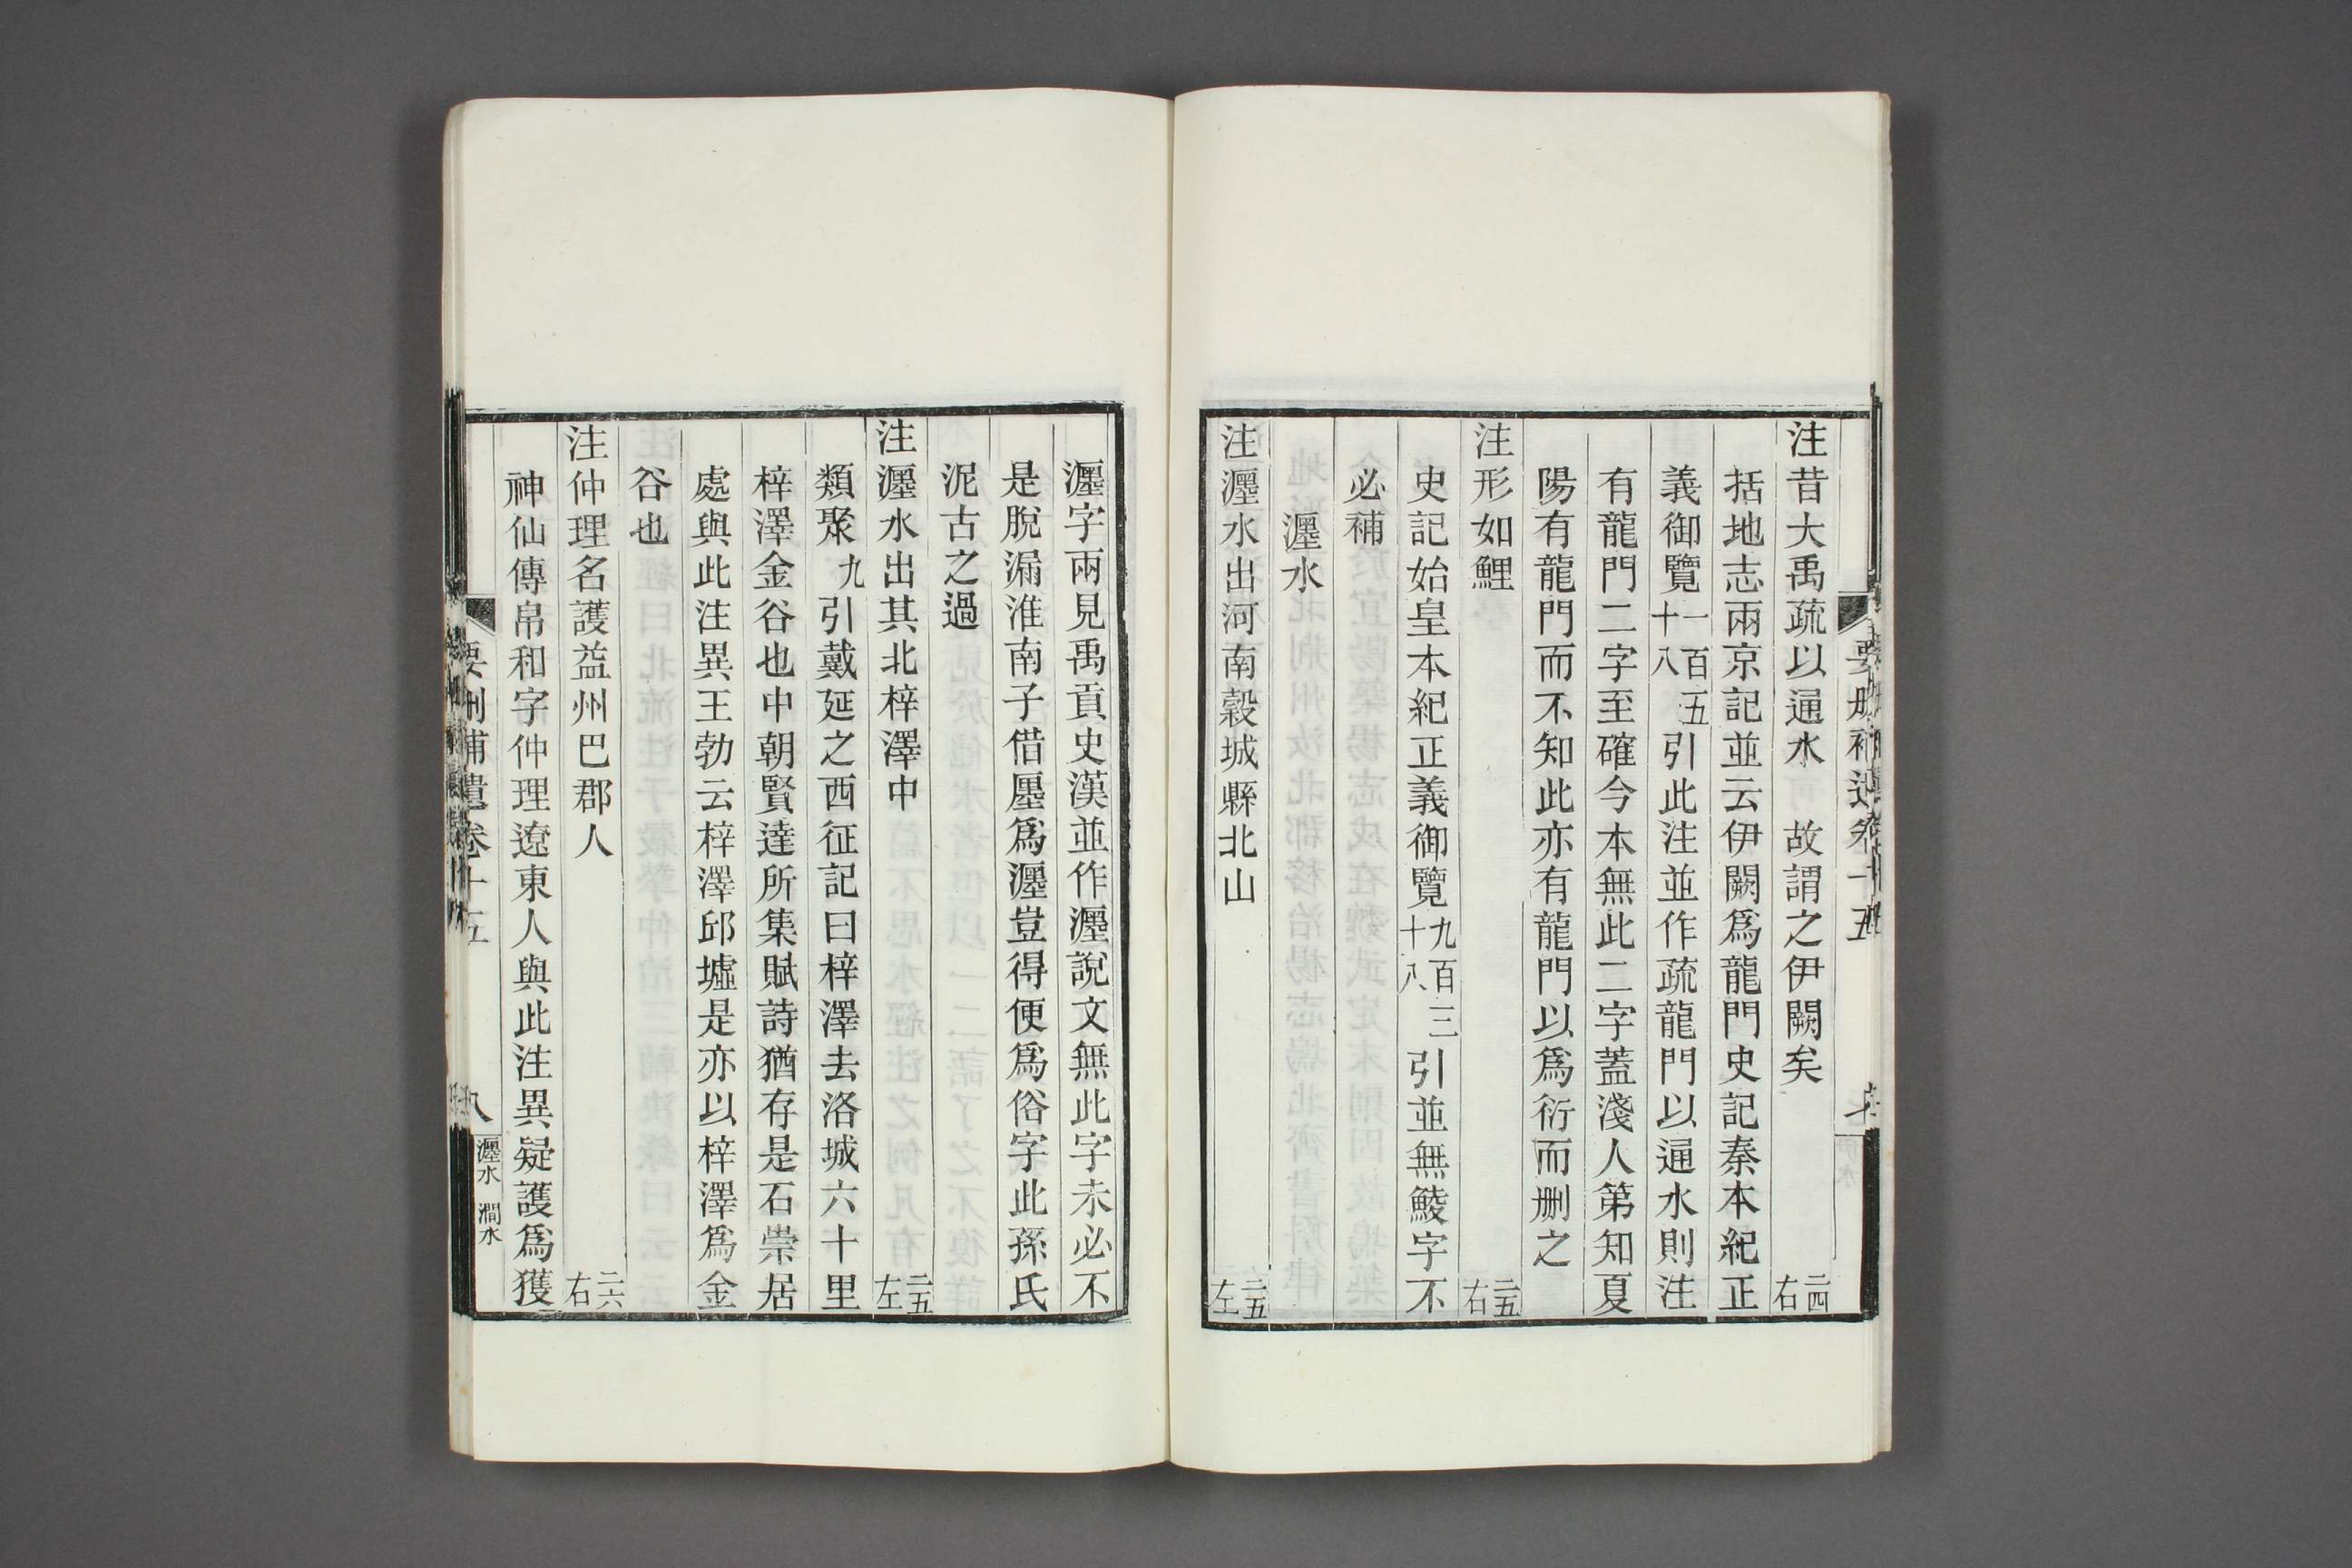 注昔大禹疏以通水　故謂之伊闕矣　二四右
括地志兩京記並云伊闕爲龍門史記秦本紀正
義御覽一百五十八引此注並作疏龍門以通水則注
有龍門二字至確今本無此二字蓋淺人第知夏
陽有龍門而不知此亦有龍門以爲衍而刪之
注形如鯉　二五右
史記始皇本紀正義御覽九百三十八引並無鯪字不
必補
瀍水
注瀍水出河南穀城縣北山　二五左
瀍字兩見禹貢史漢並作瀍說文無此字未必不
是脫漏淮南子借廛爲瀍豈得便爲俗字此孫氏
泥古之過
注瀍水出其北梓澤中　二五左
類聚九引戴延之西征記曰梓澤去洛城六十里
梓澤金谷也中朝賢達所集賦詩猶存是石崇居
處與此注異王勃云梓澤邱墟是亦以梓澤爲金
谷也
注仲理名護益州巴郡人　二六右
神仙傳帛和字仲理遼東人與此注異疑護爲獲
要刪補遺卷十五　八　瀍水　澗水